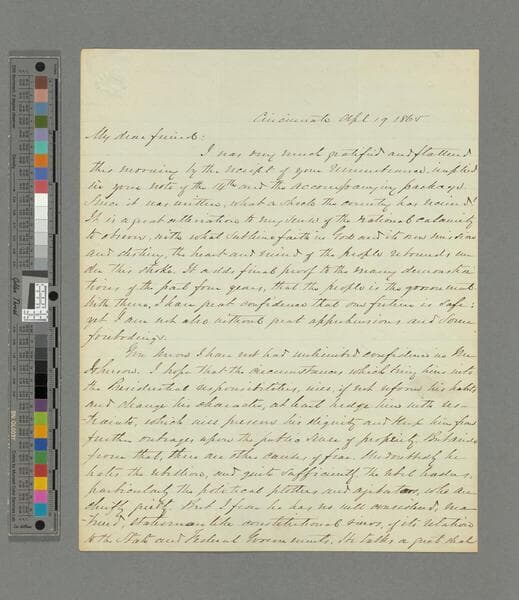 Cincinnati Apl 19 1865
My dear friend:
I was very much gratified and flattered
this morning by the receipt of your remembrance implied
in your note of the 14th and the accompanying package.
Since it was written, what a shock the country has received!
It is a great alleviation to my sense of the national calamity
to observe, with what sublime faith in God and its own mission
and destiny, the heart and mind of the people rebounds un-
der this shock. It adds final proof to the many demonstra-
tions of the past four years, that the people is the government.
With them, I have great confidence that our future is safe:
yet I am not also without great apprehensions and some
forebodings.
You know I have not had unlimited confidence in Mr
Johnson. I hope that the circumstances which bring him into
the Presidential responsibilities, will, if not reform his habits
and change his character, at least hedge him with res-
traints, which will preserve his dignity and keep him from
further outrages upon the public sense of propriety. But aside
from that, there are other causes of fear. Undoubtedly he
hates the rebellion, and quite sufficiently the rebel leaders,
particularly the political plotters and agitators, who are
chiefly guilty. But I fear he has no well considered, ma-
tured, statesmanlike constitutional views, of its relation
to the State and Federal Governments. He talks a great deal